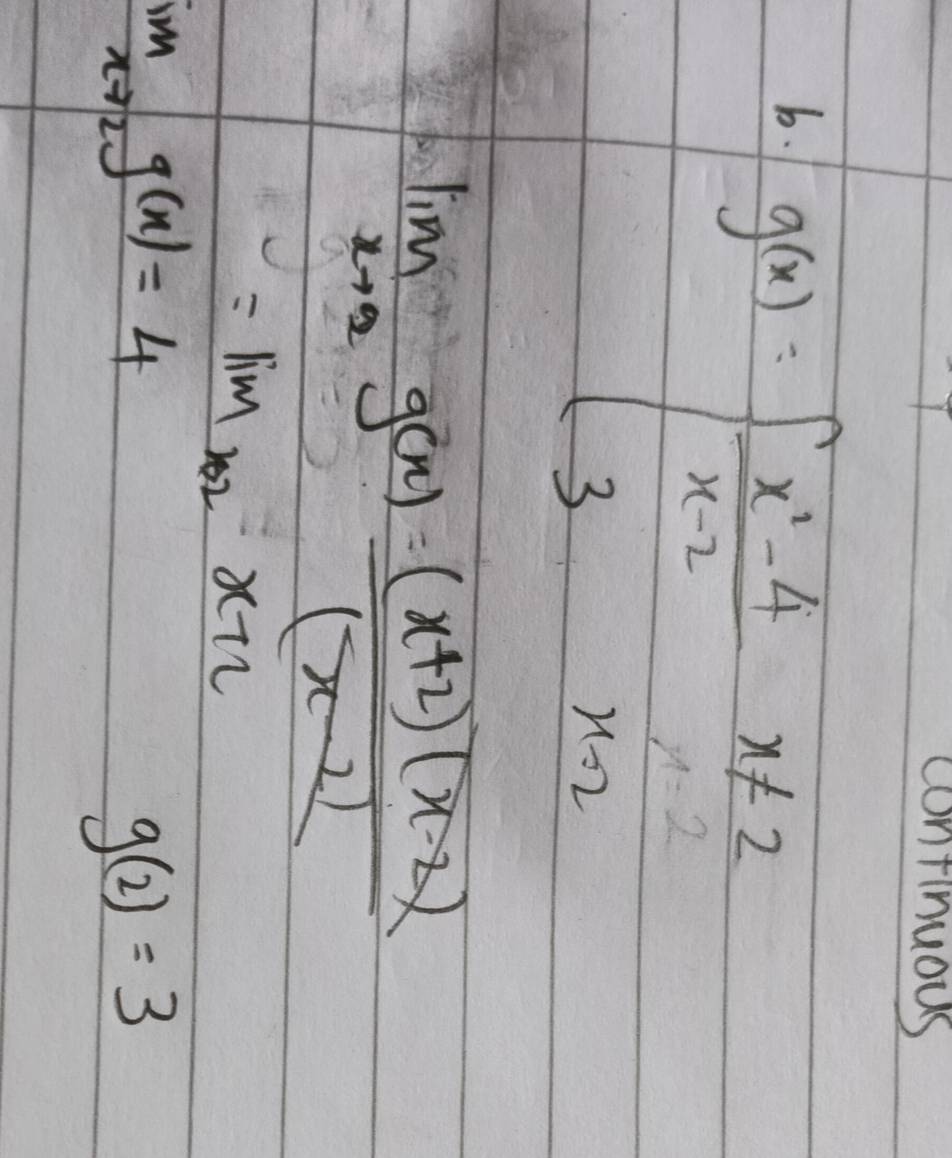 continuous
b. g(x) = { x² - 4 / x-2 x ≠ 2
3 x=2
lim x→2 g(x) = (x+2)(x-2) / (x-2)
= lim x→2 x+2
lim x→2 g(x) = 4 g(2) = 3